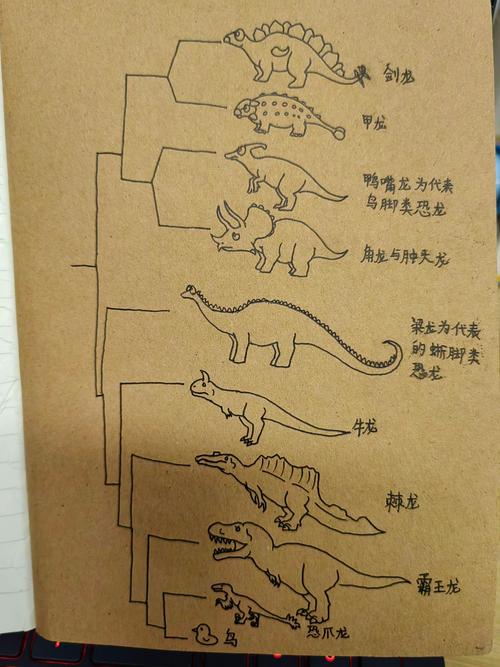 剑龙
甲龙
鸭嘴龙为代表
鸟脚类恐龙
角龙与肿头龙
梁龙为代表
的蜥脚类
恐龙
牛龙
棘龙
霸王龙
恐爪龙
鸟